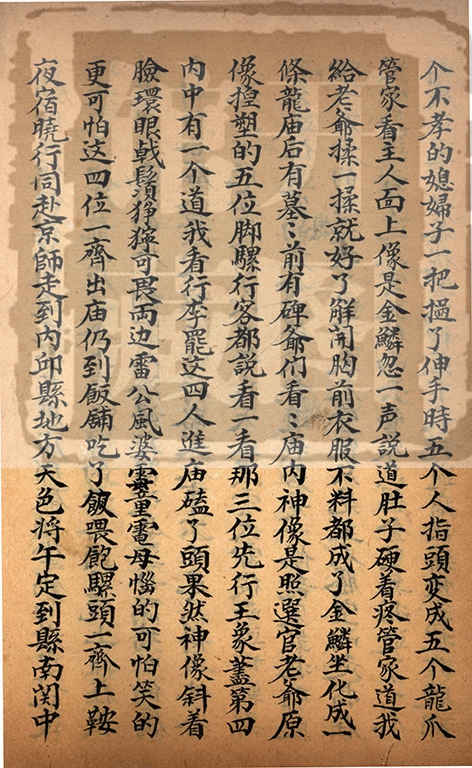 个不孝的媳婦子一把搃了伸手時五个人指頭变成五个龍爪
管家看主人面上像是金鱗忽一声說道肚子硬着疼管家道我
給老爺揉一揉就好了觧開胸前衣服不料都成了金鱗坐化成一
條龍庙后有墓〻前有碑爺们看〻庙内神像是照選官老爺原
像揑塑的五位脚騾行客都說看一看那三位先行王象蓋第四
内中有一个道我看行李罷这四人進庙磕了頭果然神像斜着
臉環眼戟鬚狰獰可畏両边雷公風婆雲童電母惱的可怕笑的
更可怕这四位一齊出庙仍到飯舖吃了飯喂飽騾頭一齊上鞍
夜宿曉行同赴京師走到内邱縣地方天色將午定到縣南関中